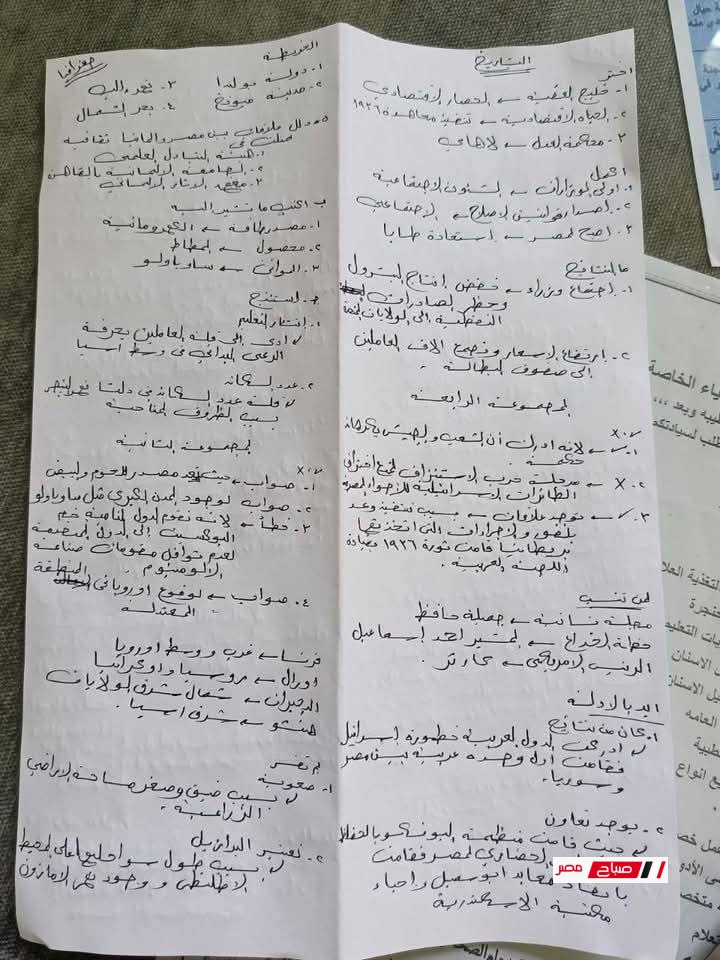 التاريخ
اختر
١- خليج العقبة ← الحصار الاقتصادي
٢- الحياة الاقتصادية ← تنفيذ معاهدة ١٩٣٦
٣- محكمة العدل ← لاهاي
اكمل
١- اولى الوزارات ← الشئون الاجتماعية
٢- اصدار قوانين الاصلاح ← الاجتماعي
٣- اصبح لمصر ← استعادة طابا
ما النتائج
١- اجتماع وزراء ← خفض انتاج البترول
وحظر الصادرات
النفطية الى الولايات المتحدة
٢- ارتفاع الاسعار وانضمام الاف العاملين
الى صفوف البطالة .
المجموعة الرابعة
✓ او X
١- ✓ ← لانه ادرك أن الشعب والجيش
٢- X ← مرحلة حرب الاستنزاف لمنع اختراق
الطائرات الاسرائيلية للاجواء المصرية
٣- ✓ ← توجد علاقات ← بسبب تنفيذ وعد
بلفور والاجراءات التى اتخذتها
بريطانيا قامت ثورة ١٩٣٦ بقيادة
اللجنة العربية .
لمن تنسب
مجلة نسائية ← جميلة حافظ
خطة الخداع ← المشير احمد اسماعيل
الرئيس الامريكى ← كارتر .
ايد بالادلة
١- كان من نتائج
ادركت الدول العربية خطورة اسرائيل
فقامت اول وحدة عربية بين مصر
وسوريا .
٢- يوجد تعاون
حيث قامت منظمة اليونسكو بالحفاظ
الحضاري لمصر فقامت
بانقاذ معابد ابو سمبل واحياء
مكتبة الاسكندرية
جغرافيا
الخريطة
١- دولة بولندا ٣- نهر
٢- مدينة ميونخ ٤- بحر الشمال
دلل علاقات بين مصر والمانيا ثقافية
تمثلت في
١- هيئة التبادل العلمى
٢- الجامعة الالمانية بالقاهرة
٣- معهد الاثار الالماني
ب- اكتب ما تشير اليه
١- مصدر طاقة ← الكهرومائية
٢- محصول ← المطاط
٣- الموانئ ← ساو باولو
ج- استنتج
١- انتشار التعليم
ادى الى قلة العاملين بحرفة
الرعى البدائي في وسط اسيا
٢- عدد السكان
قلة عدد السكان في دلتا نهر النيجر
بسبب الظروف المناخية
المجموعة الثانية
✓ او X
١- صواب ← حيث مصدر اللحوم والبيض
٢- صواب لوجود المدن الكبري مثل ساو باولو
٣- خطأ ← لانه تقوم الدول النامية خام
البوكسيت الى الدول المتقدمة
لعدم توافر مقومات صناعة
الالومنيوم .
٤- صواب ← لوقوع اوروبا في المنطقة
المعتدلة
فرنسا ← غرب ووسط اوروبا
اورال ← روسيا واوكرانيا
البحيرات ← شمال شرق الولايات
هنشو ← شرق اسيا .
بم تفسر
١- صعوبة
بسبب ضيق وصغر مساحة الاراضي
الزراعية .
٢- تعتبر البرازيل
بسبب طول سواحلها على المحيط
الاطلنطى ووجود نهر الامازون
صباح مصر
ياء الخاصة
طيبه وبعد ،،،
طلب لسيادتكم
التغذية العلا
ل الاسنان
العامه
طبية
ع انواع